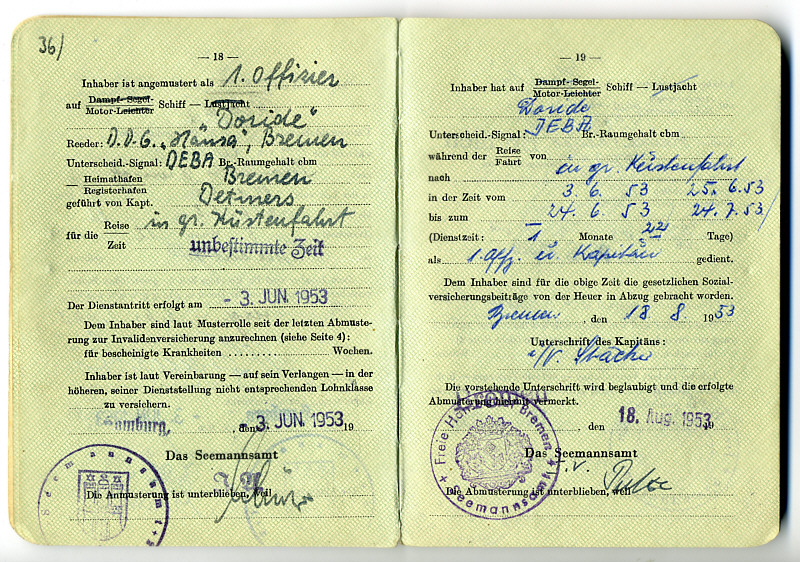 36/
— 18 —
Inhaber ist angemustert als 1. Offizier
auf Dampf- Segel- Motor-Leichter Schiff — Lustjacht
"Doride"
Reeder: D.D.G. "Hansa", Bremen
Unterscheid.-Signal: DEBA Br.-Raumgehalt cbm
Heimathafen Bremen
Registerhafen
geführt von Kapt. Detmers
für die Reise in gr. Küstenfahrt
Zeit unbestimmte Zeit
Der Dienstantritt erfolgt am - 3. JUN. 1953
Dem Inhaber sind laut Musterrolle seit der letzten Abmuste-
rung zur Invalidenversicherung anzurechnen (siehe Seite 4):
für bescheinigte Krankheiten .......... Wochen.
Inhaber ist laut Vereinbarung — auf sein Verlangen — in der
höheren, seiner Dienststellung nicht entsprechenden Lohnklasse
zu versichern.
Hamburg, den 3. JUN. 1953 19
Das Seemannsamt
Seemannsamt
Die Anmusterung ist unterblieben, weil
— 19 —
Inhaber hat auf Dampf- Segel- Motor-Leichter Schiff — Lustjacht
Doride
Unterscheid.-Signal: DEBA Br.-Raumgehalt cbm
während der Reise Fahrt von
nach in gr. Küstenfahrt
in der Zeit vom 3 6. 53 25. 6.53
bis zum 24. 6. 53 24. 7. 53/
(Dienstzeit: 1 Monate 22 Tage)
als 1. Offz. u. Kapitän gedient.
Dem Inhaber sind für die obige Zeit die gesetzlichen Sozial-
versicherungsbeiträge von der Heuer in Abzug gebracht worden.
Bremen, den 18. 8. 1953
Unterschrift des Kapitäns:
Die vorstehende Unterschrift wird beglaubigt und die erfolgte
Abmusterung hiermit vermerkt.
, den 18. Aug. 1953 19
Das Seemannsamt
Freie Hansestadt Bremen
Seemannsamt
I.V.
Die Abmusterung ist unterblieben, weil